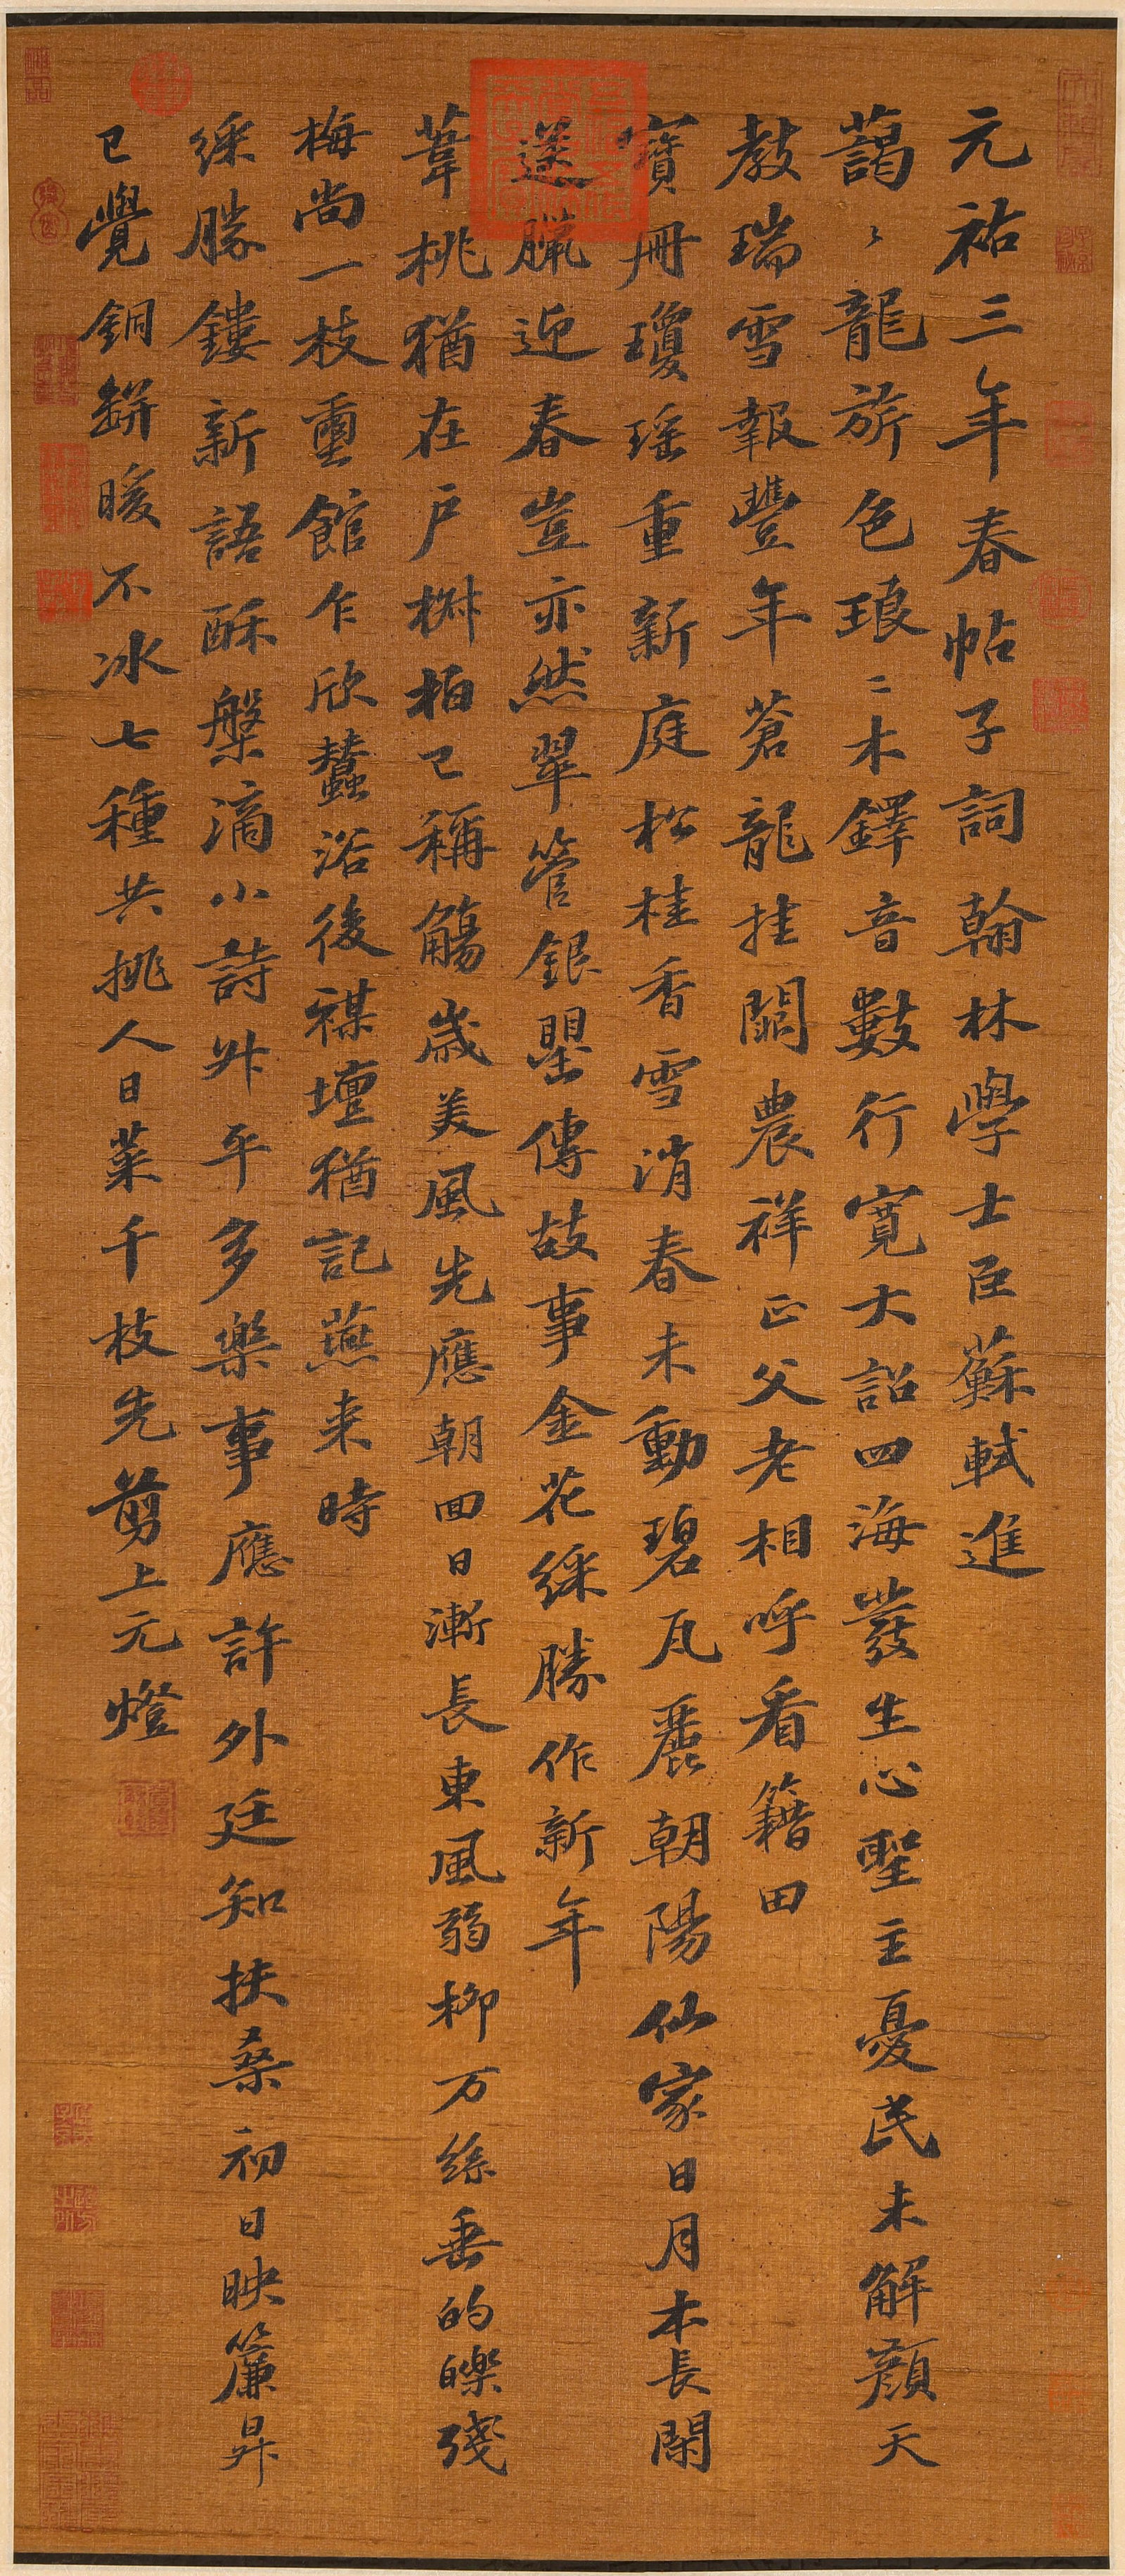 元祐三年春帖子詞翰林學士臣蘇軾進
藹〻龍旂色琅〻木鐸音數行寬大詔四海發生心聖主憂民未解顏天
教瑞雪報豐年蒼龍挂闕農祥正父老相呼看籍田
寶冊瓊瑤重新庭松桂香雪消春未動碧瓦麗朝陽仙家日月本長閑
送臘迎春豈亦然翠管銀罌傳故事金花綵勝作新年
葦桃猶在戶椒柏已稱觴歲美風先應朝回日漸長東風弱柳万絲垂的皪殘
梅尚一枝璽館乍欣蠶浴後禖壇猶記燕来時
綵勝鏤新語酥槃滴小詩昇平多樂事應許外廷知扶桑初日映簾昇
已覺銅缾暖不冰七種共挑人日菜千枝先剪上元燈